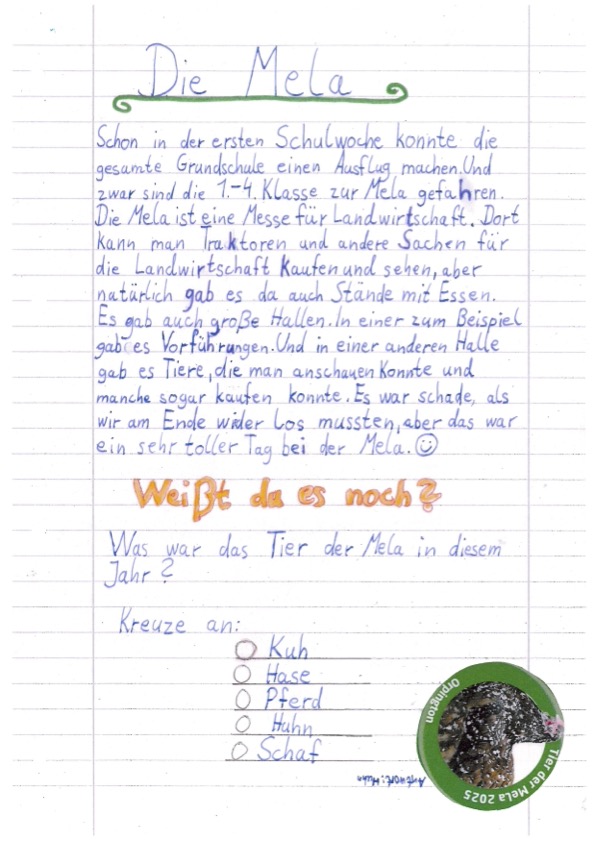 Die Mela
Schon in der ersten Schulwoche konnte die
gesamte Grundschule einen Ausflug machen. Und
zwar sind die 1.-4. Klasse zur Mela gefahren.
Die Mela ist eine Messe für Landwirtschaft. Dort
kann man Traktoren und andere Sachen für
die Landwirtschaft kaufen und sehen, aber
natürlich gab es da auch Stände mit Essen.
Es gab auch große Hallen. In einer zum Beispiel
gab es Vorführungen. Und in einer anderen Halle
gab es Tiere, die man anschauen konnte und
manche sogar kaufen konnte. Es war schade, als
wir am Ende wider los mussten, aber das war
ein sehr toller Tag bei der Mela. ☺
Weißt du es noch?
Was war das Tier der Mela in diesem
Jahr?
Kreuze an:
Kuh
Hase
Pferd
Huhn
Schaf
Antwort: Huhn
Orpington
Tier der Mela 2025